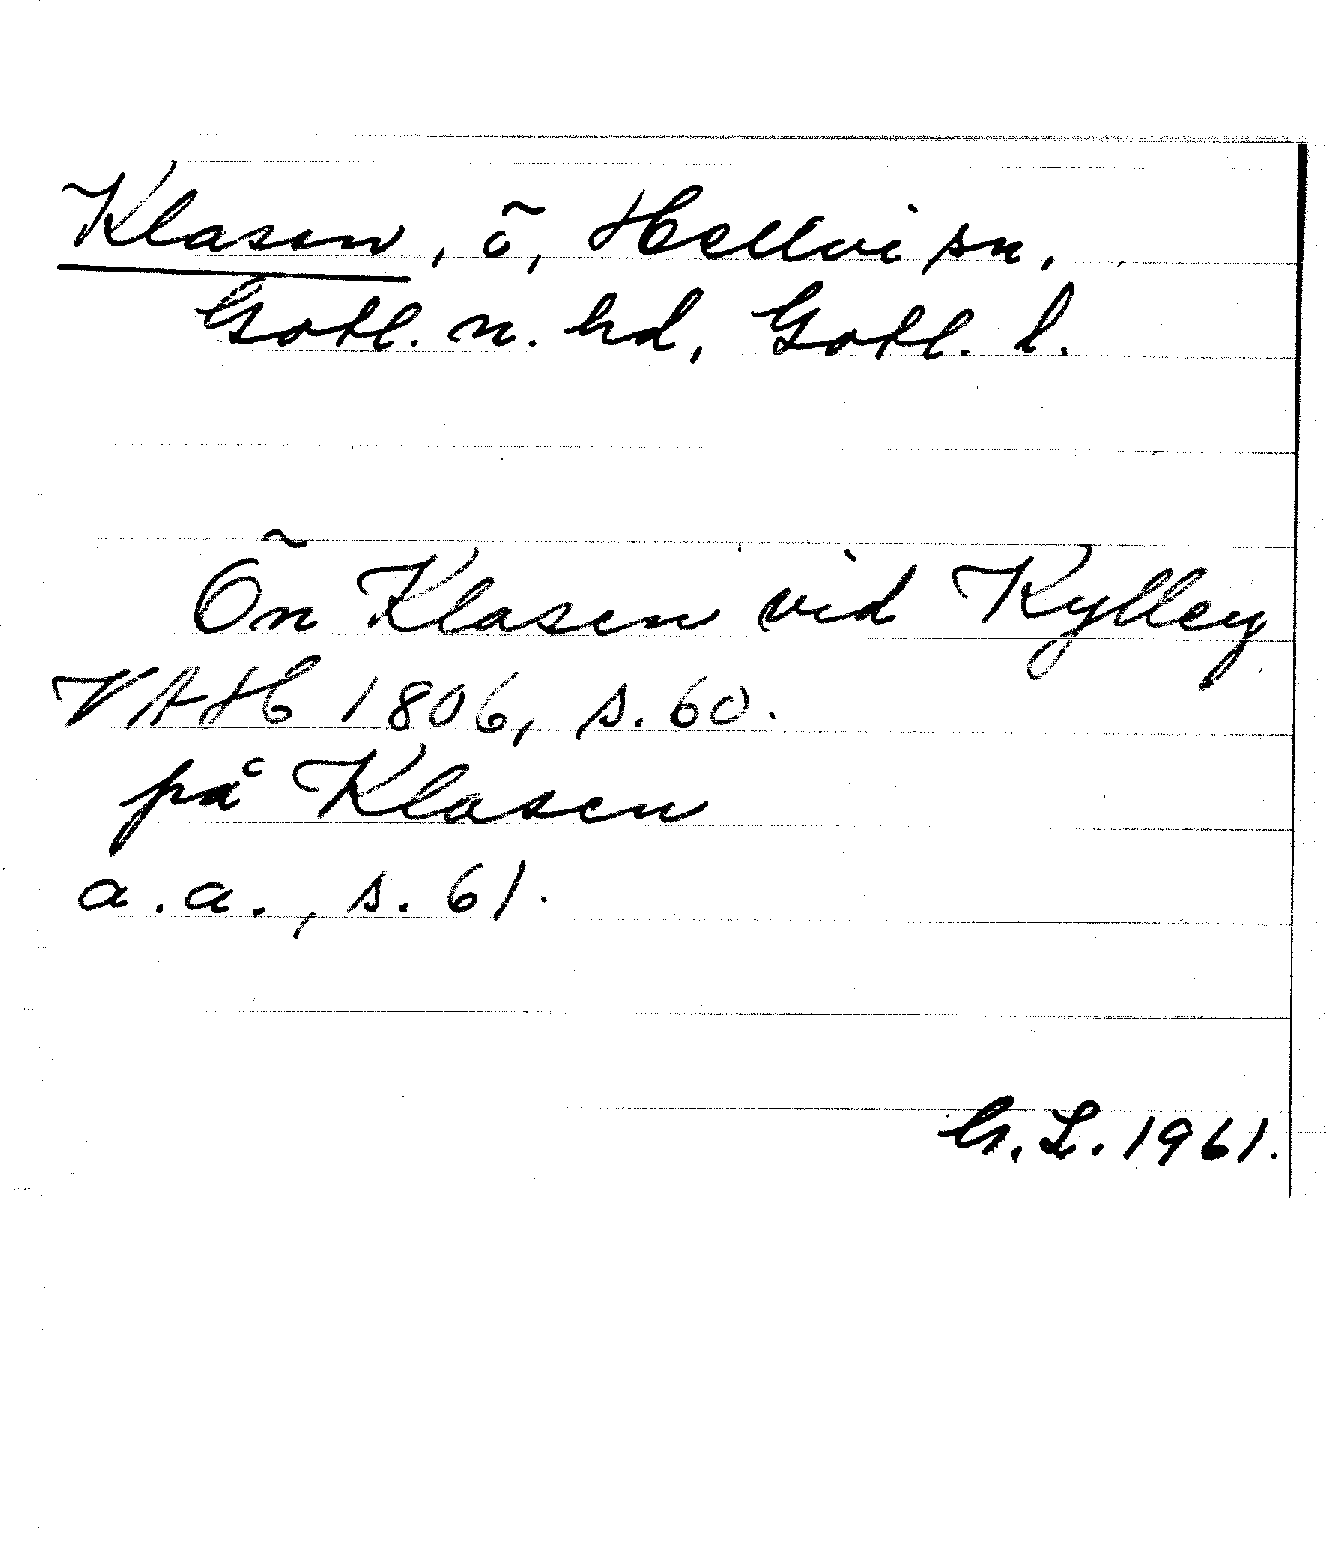 Klasen, ö, Hellvi sn,
Gotl. n. hd, Gotl. l.
Ön Klasen vid Kylley
VAH 1806, s. 60.
på Klasen
a.a., s. 61.
G. L. 1961.